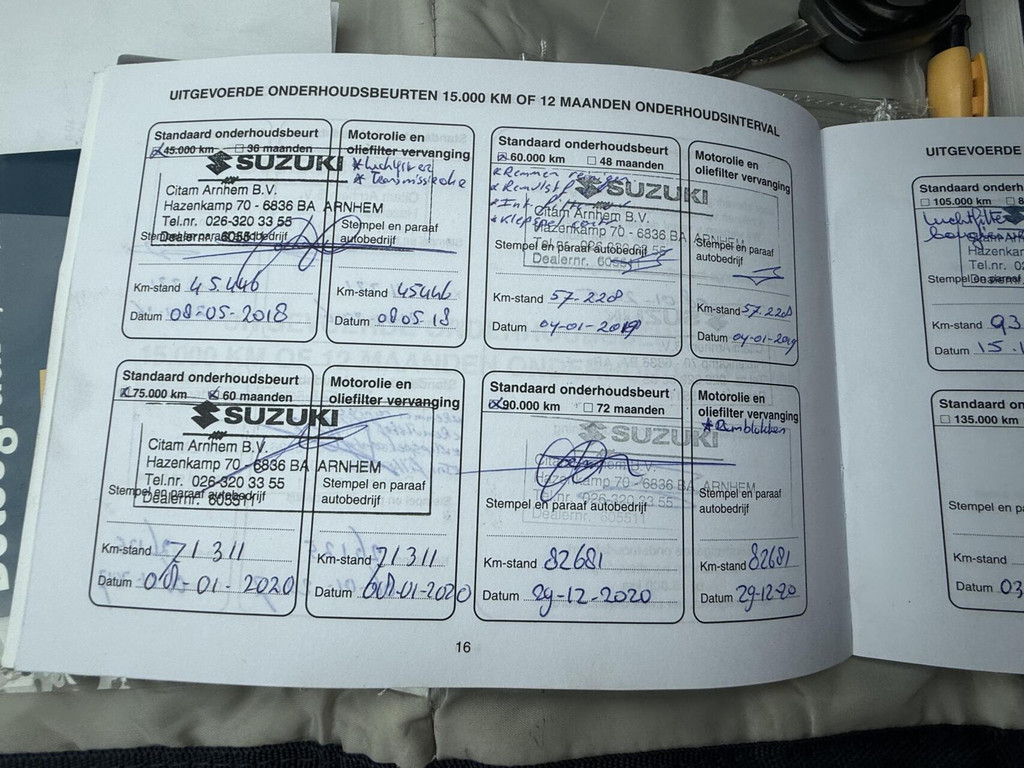 UITGEVOERDE ONDERHOUDSBEURTEN 15.000 KM OF 12 MAANDEN ONDERHOUDSINTERVAL
Standaard onderhoudsbeurt
45.000 km 36 maanden
SUZUKI
Citam Arnhem B.V.
Hazenkamp 70 - 6836 BA ARNHEM
Tel.nr. 026-320 33 55
Dealernr.
Stempel en paraaf autobedrijf
Km-stand 45446
Datum 08-05-2018
Motorolie en
oliefilter vervanging
* Luchtfilter
* Transmissieolie
Stempel en paraaf
autobedrijf
Km-stand 45446
Datum 08 05 18
Standaard onderhoudsbeurt
60.000 km 48 maanden
* Remmen reinigen
SUZUKI
Citam Arnhem B.V.
Hazenkamp 70 - 6835 BA ARNHEM
Stempel en paraaf autobedrijf
Dealernr. 605511
Km-stand 57.228
Datum 04-01-2019
Motorolie en
oliefilter vervanging
Stempel en paraaf
autobedrijf
Km-stand 57.228
Datum 04-01-2019
Standaard onderhoudsbeurt
75.000 km 60 maanden
SUZUKI
Citam Arnhem B.V.
Hazenkamp 70 - 6836 BA ARNHEM
Tel.nr. 026-320 33 55
Stempel en paraaf autobedrijf
Dealernr. 605511
Km-stand 71311
Datum 01-2020
Motorolie en
oliefilter vervanging
Stempel en paraaf
autobedrijf
Km-stand 71311
Datum 01-2020
Standaard onderhoudsbeurt
90.000 km 72 maanden
SUZUKI
B.V.
Hazenkamp 70 - 6835 BA ARNHEM
Tel.nr. 026-320 33 55
Stempel en paraaf autobedrijf
Dealernr. 605511
Km-stand 82681
Datum 29-12-2020
Motorolie en
oliefilter vervanging
* Remblokken
Stempel en paraaf
autobedrijf
Km-stand 82681
Datum 29-12-20
16
UITGEVOERDE
Standaard onderh
105.000 km 8
Luchtfilter
Hazenkar
Tel.nr. 02
Stempel en
Km-stand 93.
Datum 15.1
Standaard on
135.000 km
Stempel en p
Km-stand
Datum 03